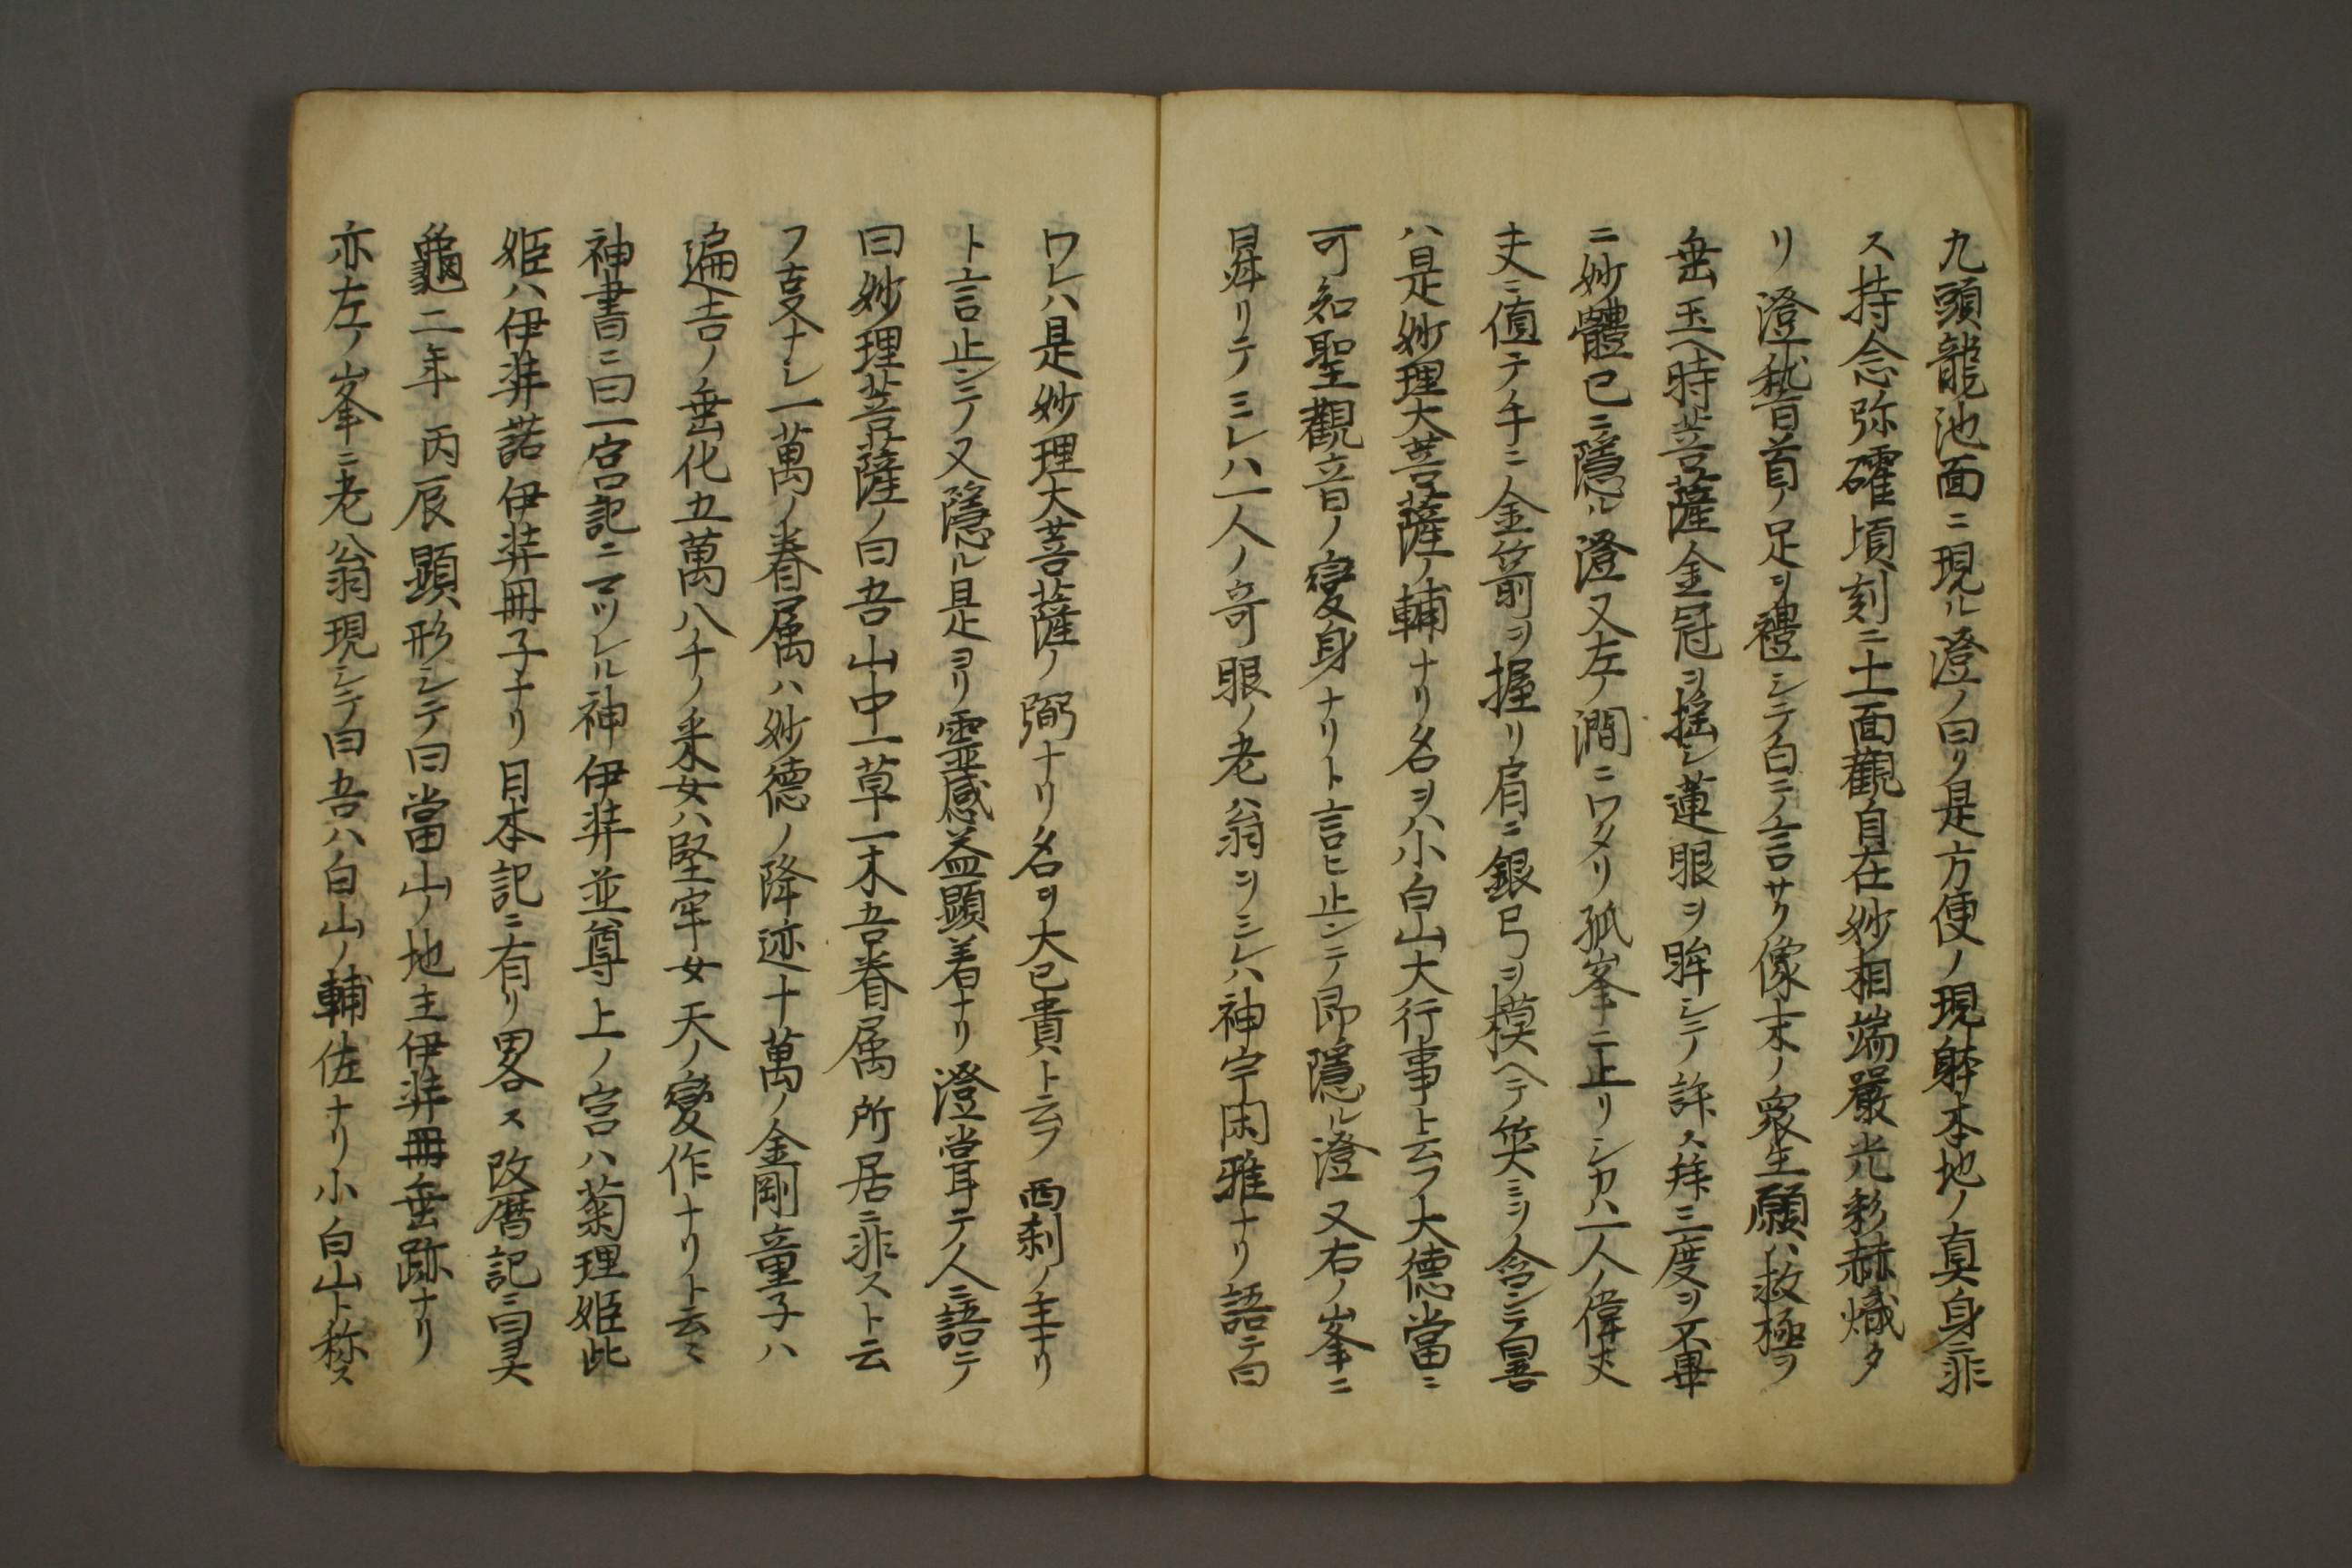 九頭龍池面ニ現ル澄ノ曰ク是方便ノ現躰本地ノ真身ニ非
ス持念弥確頃刻ニ十一面觀自在妙相端嚴光彩赫熾タ
リ澄稽首ノ足ヲ禮シテ白シテ言サク像末ノ衆生願ハ救極ヲ
垂玉ヘ時ニ菩薩金冠ヲ揺シ蓮眼ヲ眸シテ許ス拜三度ヲ不畢
ニ妙體已ニ隱ル澄又左ノ澗ニワタリ孤峯ニ上リシカハ一人ノ偉丈
夫ニ値テ手ニノ金箭ヲ握リ肩ニ銀弓ヲ横ヘテ笑ミヲ含シテ曰吾
ハ是妙理大菩薩ノ輔ナリ名ヲハ小白山大行事ト云フ大德當ニ
可知聖觀音ノ變身ナリト言ヒ止ンテ即隱ル澄又右ノ峯ニ
昇リテミレハ一人ノ奇眼ノ老翁ヲミレハ神宇閑雅ナリ語テ曰
ワレハ是妙理大菩薩ノ弼ナリ名ヲ大己貴ト云フ西刹ノ主ナリ
ト言止シテ又隱ル是ヨリ靈感益顯著ナリ澄嘗テ人ニ語テ
曰妙理菩薩ノ曰吾山中一草一木吾眷属所居ニ非スト云
フ叓ナレ一萬ノ眷属ハ妙德ノ降迹十萬ノ金剛童子ハ
遍吉ノ垂化五萬八千ノ釆女ハ堅牢女天ノ變作ナリト云々
神書ニ曰一宮記ニマツレル神伊弉並尊上ノ宮ハ菊理姫此
姫ハ伊弉諾伊弉冊子ナリ日本記ニ有リ畧ス改暦記ニ曰灵
龜二年丙辰顯形シテ曰當山ノ地主伊弉冊垂跡ナリ
亦左ノ峯ニ老公翁現シテ曰吾ハ白山ノ輔佐ナリ小白山ト称ス